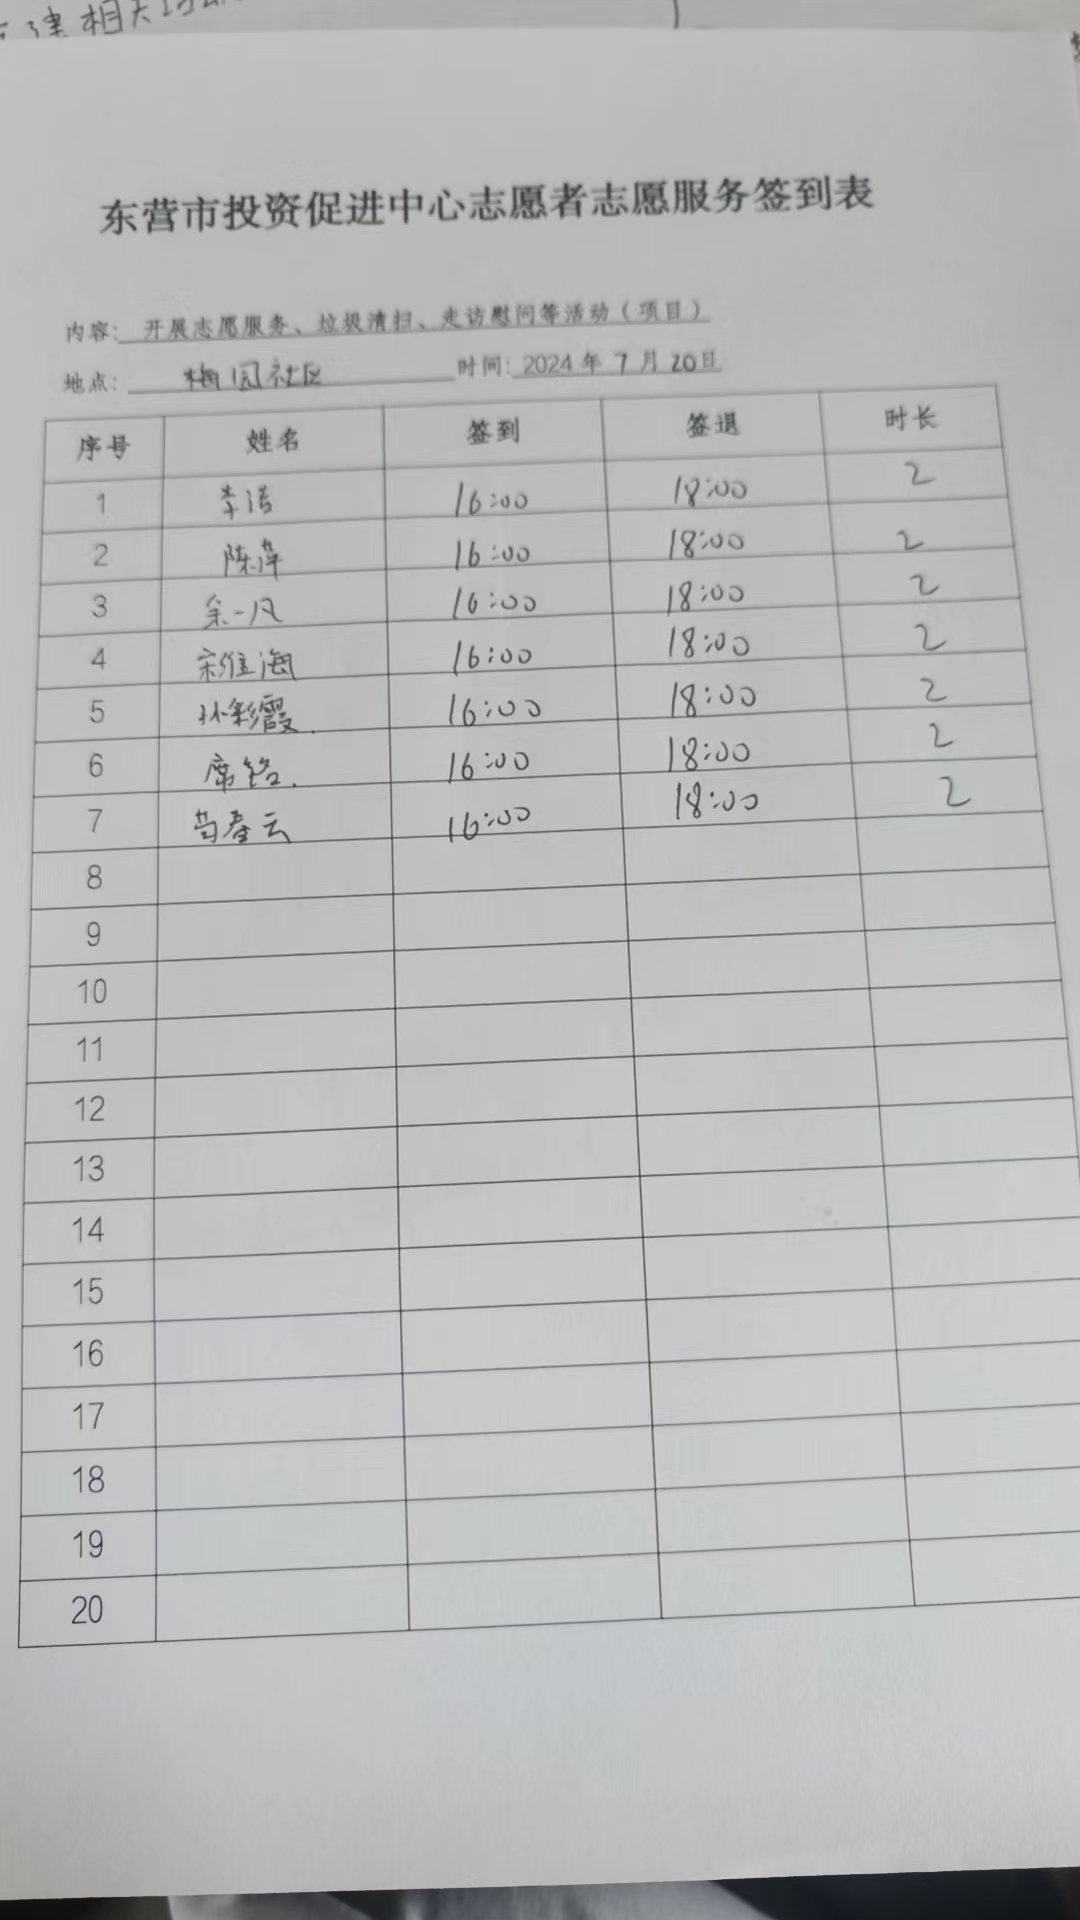 建相关
东营市投资促进中心志愿者志愿服务签到表
内容: 开展志愿服务、垃圾清扫、走访慰问等活动（项目）
地点: 梅园社区 时间: 2024 年 7 月 20日
序号 姓名 签到 签退 时长
1 李洁 16:00 18:00 2
2 陈萍 16:00 18:00 2
3 余一凡 16:00 18:00 2
4 宋维海 16:00 18:00 2
5 孙彩霞 16:00 18:00 2
6 席铭 16:00 18:00 2
7 苟春云 16:00 18:00 2
8
9
10
11
12
13
14
15
16
17
18
19
20